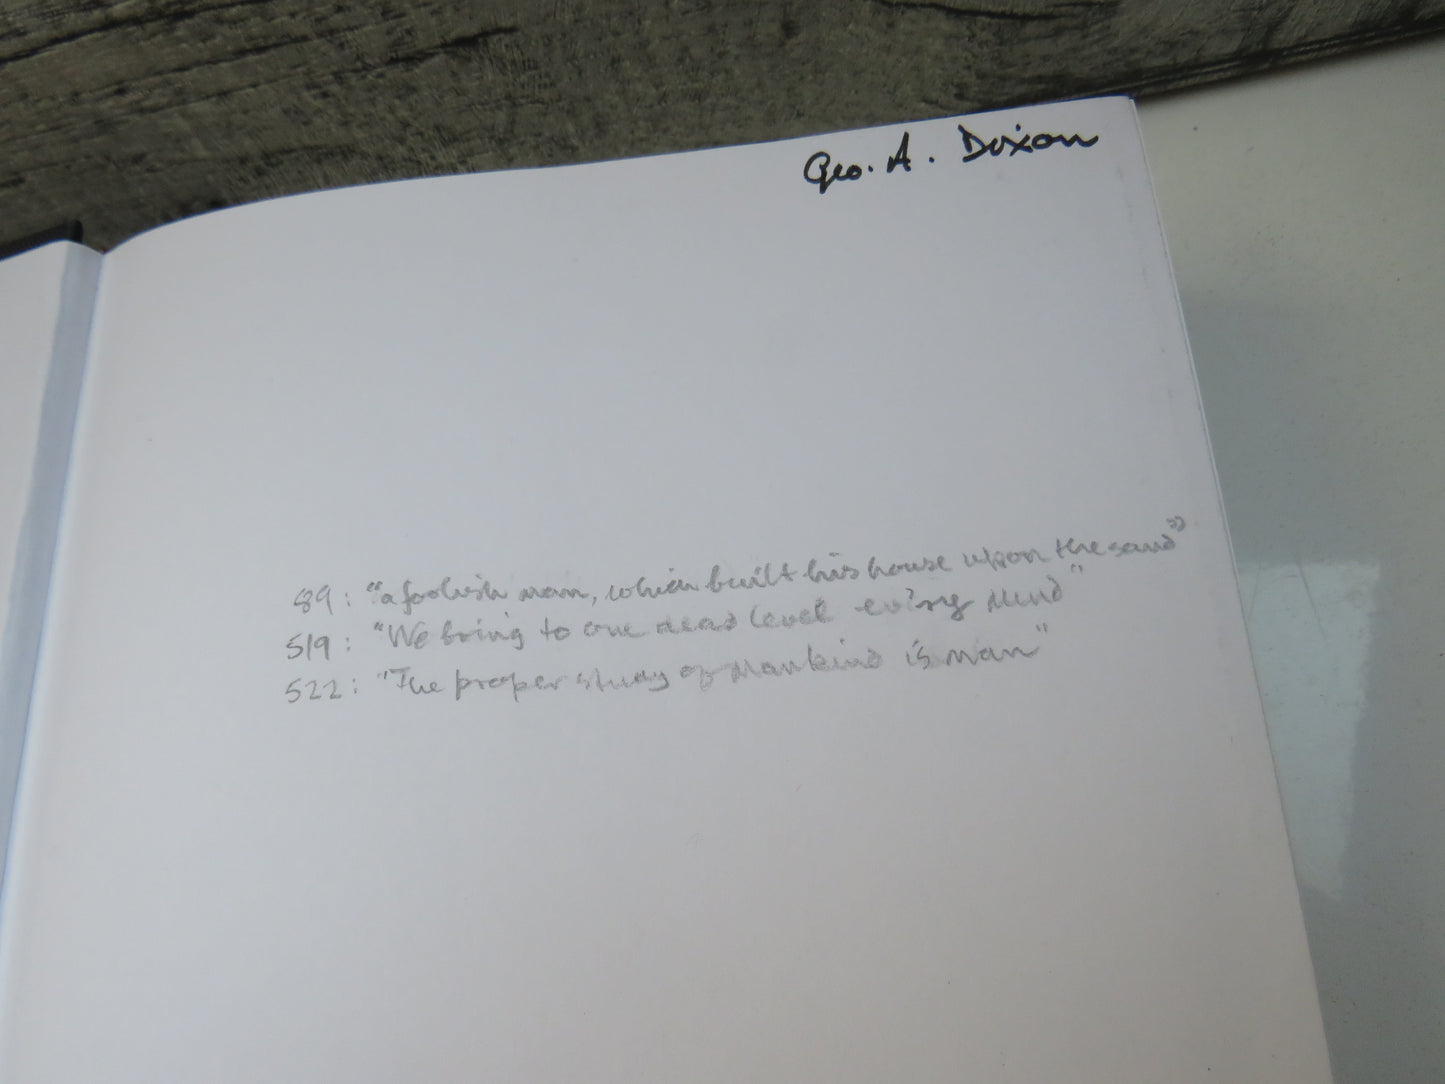 Geo. A. Dixon
89: "a foolish man, which built his house upon the sand"
519: "We bring to one dead level ev'ry mind"
522: "The proper study of mankind is man"